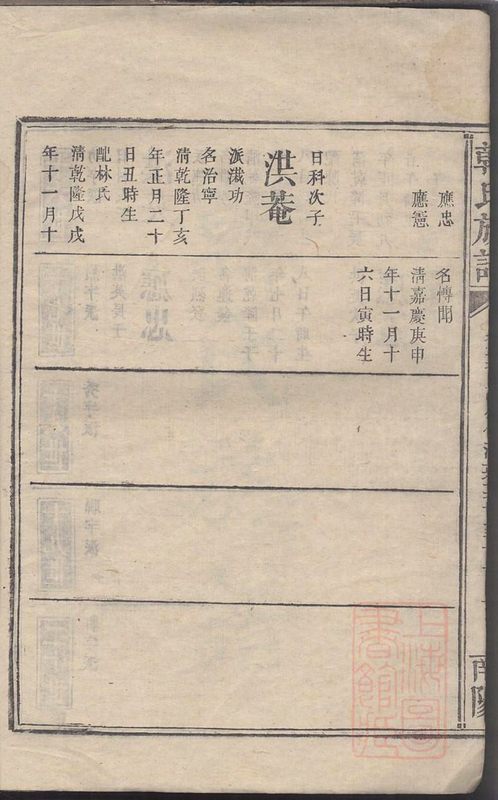 應忠
應憲
日科次子
洪菴
派濈功
名治寧
清乾隆丁亥
年正月二十
日丑時生
配林氏
清乾隆戊戌
年十一月十
名傳聞
清嘉慶庚申
年十一月十
六日寅時生
韓氏族譜
南陽
上海圖書館藏